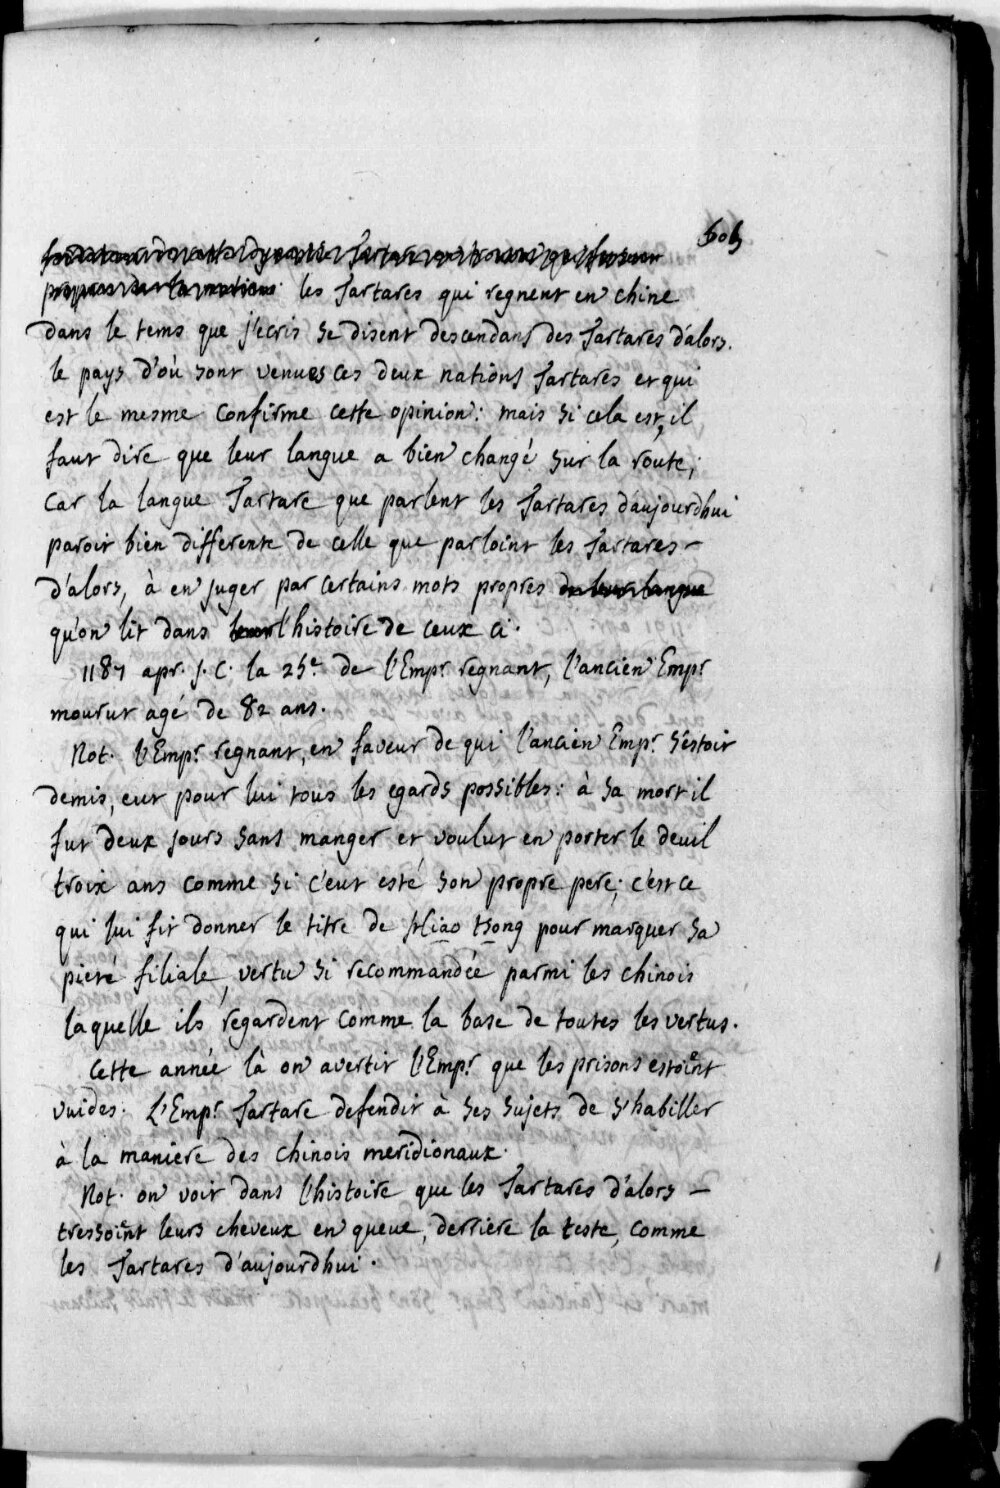 605
les Tartares qui regnent en chine
dans le tems que j'ecris se disent descendans des Tartares d'alors.
le pays d'où sont venues ces deux nations Tartares et qui
est le mesme confirme cette opinion: mais si cela est, il
faut dire que leur langue a bien changé sur la route;
car la langue Tartare que parlent les Tartares d'aujourdhui
paroit bien differente de celle que parloint les Tartares
d'alors, à en juger par certains mots propres de leur langue
qu'on lit dans leur l'histoire de ceux ci.
1187 apr. J. C. la 25e. de l'Empr. regnant, l'ancien Empr.
mourut agé de 82 ans.
Not. l'Empr. regnant, en faveur de qui l'ancien Empr. s'estoit
demis, eut pour lui tous les egards possibles: à sa mort il
fut deux jours sans manger et voulut en porter le deuil
troix ans comme si c'eut esté son propre pere; c'est ce
qui lui fit donner le titre de Hiao tsong pour marquer sa
pieté filiale, vertu si recommandée parmi les chinois
laquelle ils regardent comme la base de toutes les vertus.
Cette année là on avertit l'Empr. que les prisons estoint
vuides. L'Empr. Tartare defendit à ses sujets de s'habiller
à la maniere des chinois meridionaux.
Not. on voit dans l'histoire que les Tartares d'alors
tressoint leurs cheveux en queue, derriere la teste, comme
les Tartares d'aujourdhui.